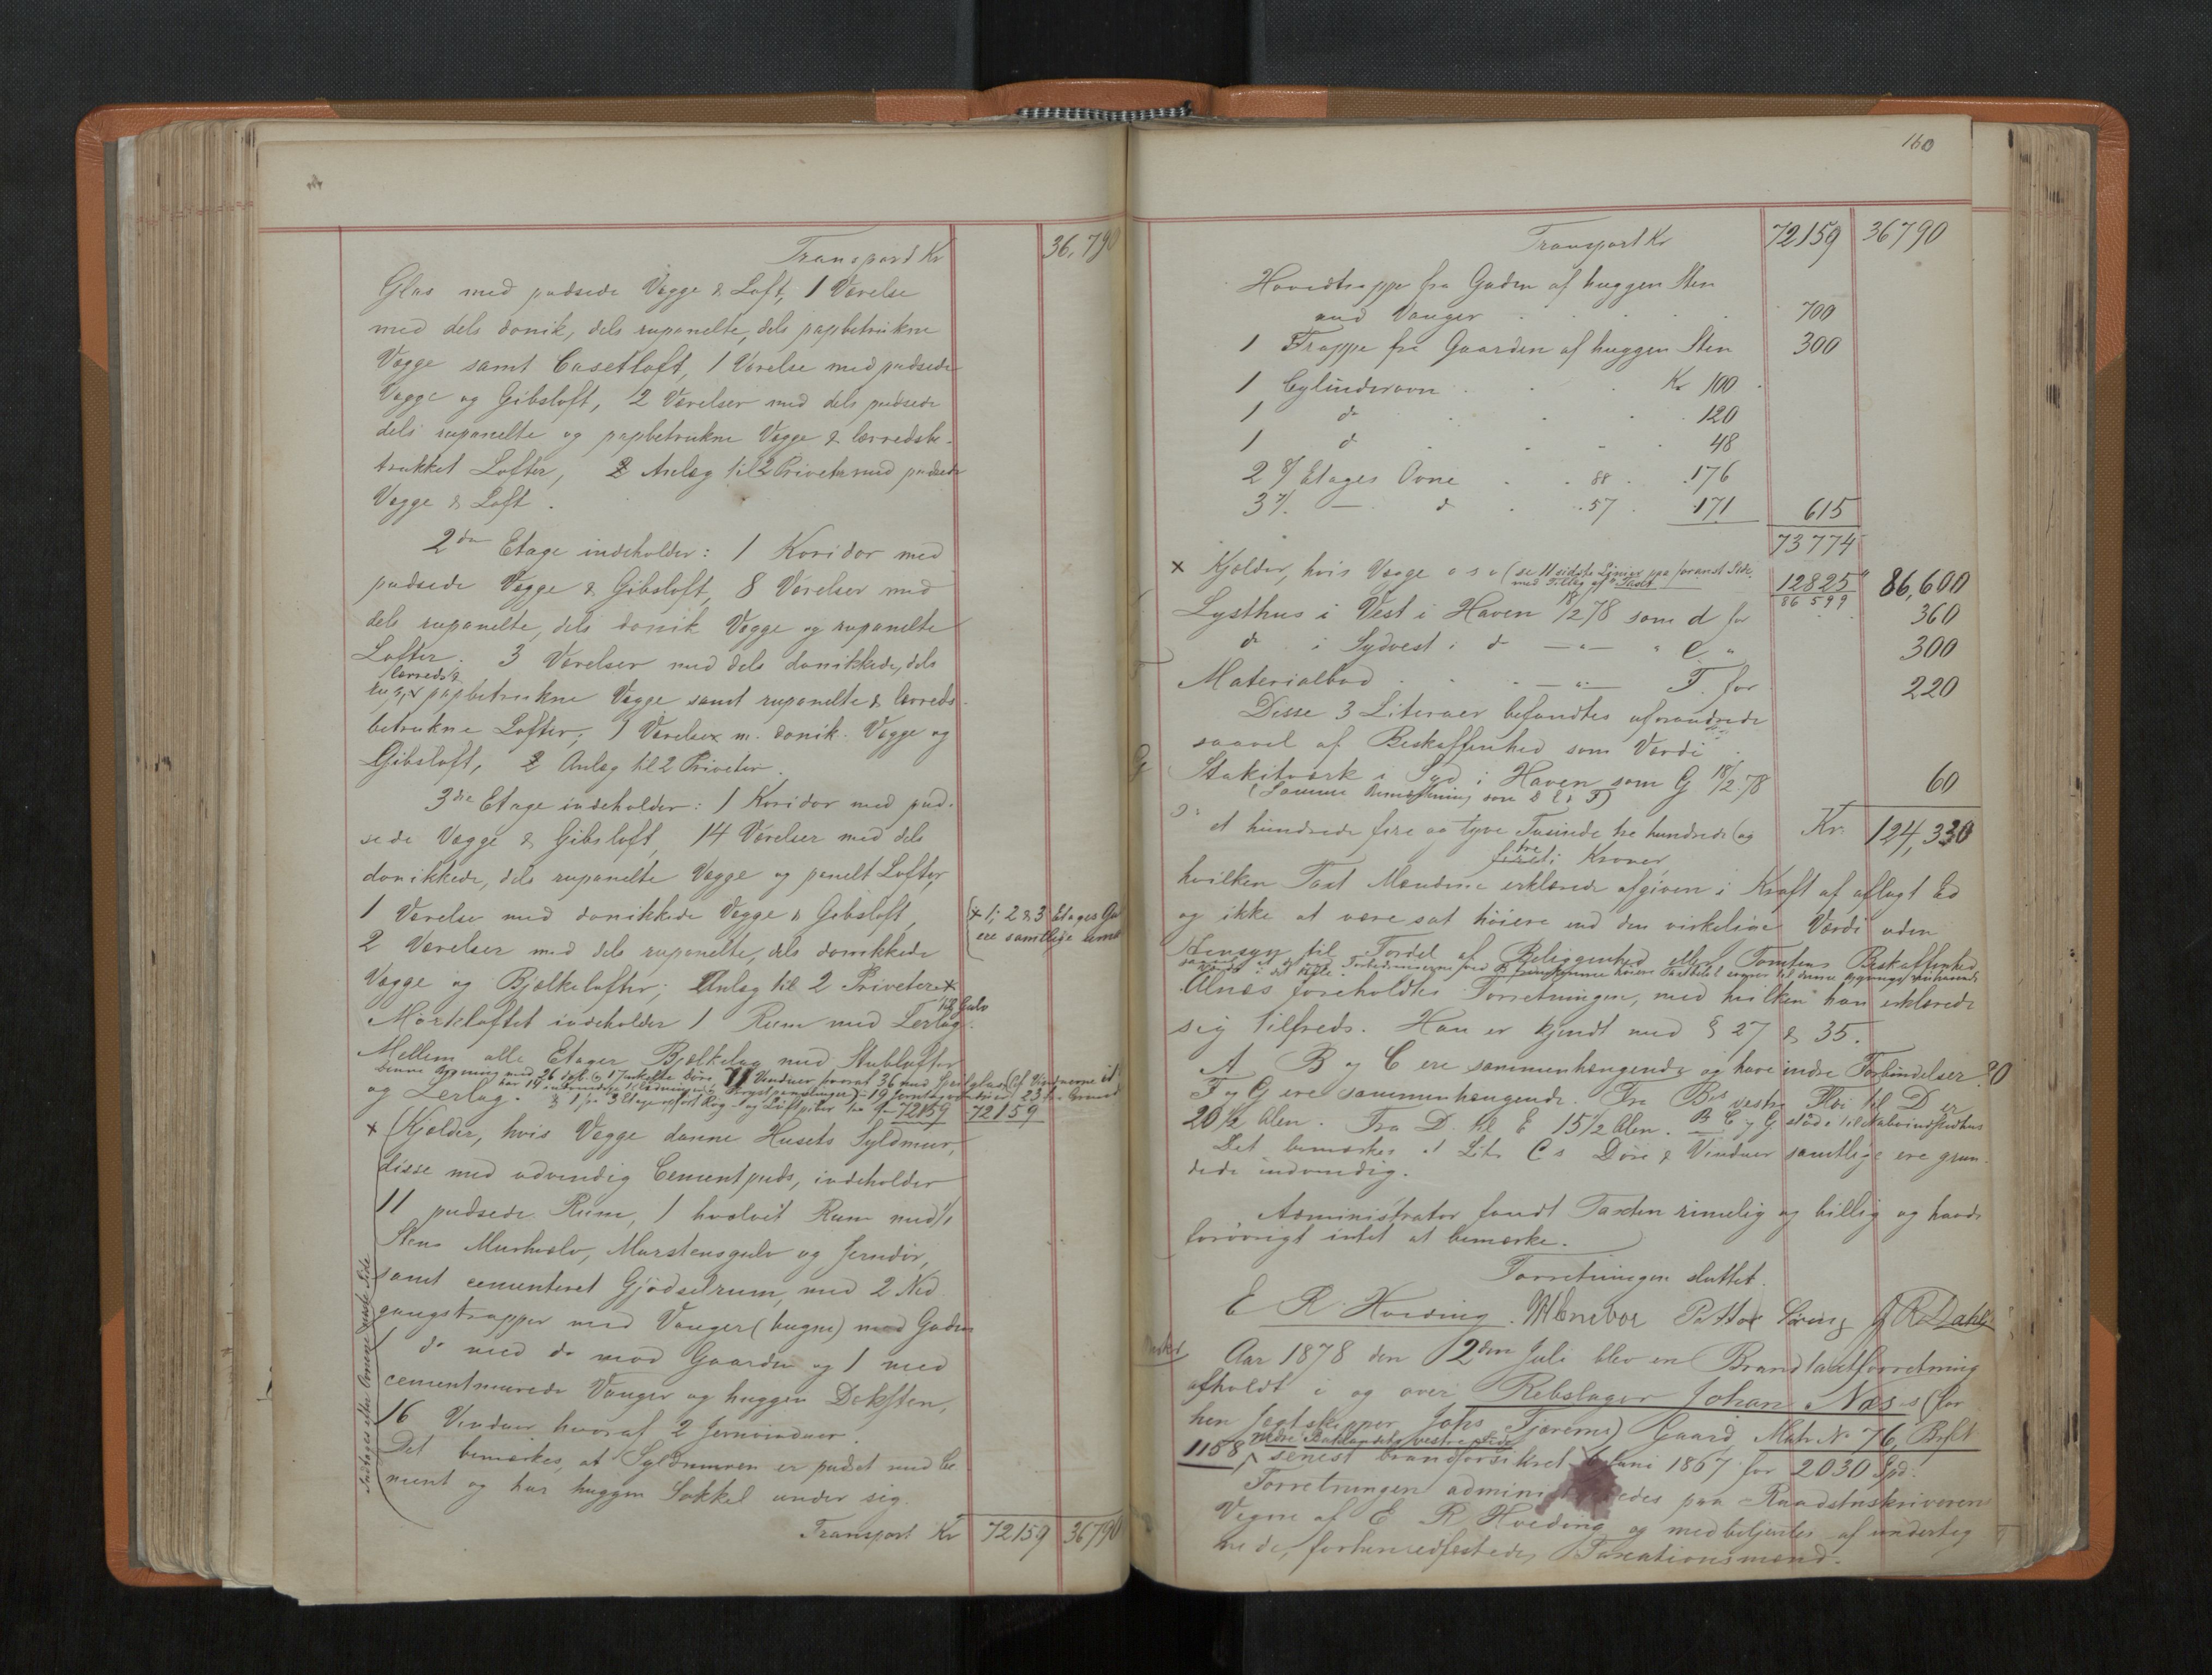 Transport Kr 36,790
Glas med pudsede Vægge & Loft, 1 Værelse
med dels donik, dels rupanelte, dels papbetrukne
Vægge samt Casetloft, 1 Værelse med pudsede
Vægge og Gibsloft, 2 Værelser med dels pudsede
dels rupanelte og papbetrukne Vægge & lærredsbe-
trukket Lofter, 2 Anlæg til 2 Priveter med pudsede
Vægge & Loft.
2den Etage indeholder: 1 Koridor med
pudsede Vægge & Gibsloft, 8 Værelser med
dels rupanelte, dels donik Vægge og rupanelte
Lofter. 3 Værelser med dels donikkede, dels
lærreds &
papbetrukne Vægge samt rupanelte & lærreds-
betrukne Lofter; 1 Værelse m. donik. Vægge og
Gibsloft, 2 Anlæg til 2 Priveter.
3die Etage indeholder: 1 Koridor med pud-
sede Vægge & Gibsloft, 14 Værelser med dels
donikkede, dels rupanelte Vægge og panelt Lofter,
1 Værelse med donikkede Vægge & Gibsloft,
(x 1, 2 & 3 Etages
ere samtlige
2 Værelser med dels rupanelte, dels donikkede
Vægge og Bjælkelofter; Anlæg til 2 Priveter x
Mørkloftet indeholder 1 Rum med Lerlag. Gulv
Mellem alle Etager Bjælkelag med Stublofter
Denne Bygning med 26 dob. og 17 enkelte Døre, 71 Vinduer hvoraf 36 med Speilglas
og Lerlag. 72159 72159
x (Kjælder, hvis Vægge danne Husets Syldmur,
disse med udvendig Cementpuds, indeholder
11 pudsede Rum, 1 hvælvet Rum med ½
Stens Murhvælv, Murstensgulv og Jerndør,
samt cementeret Gjødselrum, med 2 Ned
gangstrapper med Vanger (hugne) mod Gaden
1 do med do mod Gaarden og 1 med
cementmurede Vanger og huggen Dæksten,
16 Vinduer hvoraf 2 Jernvinduer.
Det bemærkes, at Syldmuren er pudset med Ce
ment og har huggen Sokkel under sig.
Indtages efter Ovnene næste Side
Transport Kr 72159 36790
160
Transport Kr 72159 36790
Hovedtrappe fra Gaden af huggen Sten
med Vanger 700
1 Trappe fra Gaarden af huggen Sten 300
1 Cylinderovn Kr 100
1 do 120
1 do 48
2 Etages Ovne 88 176
3 — do 57 171 615
73774
x Kjælder, hvis Vægge o s v (se 11 sidste Linier paa foranst. Side
med Tillæg af Taxt 12825 86,600
86599
Lysthus i Vest i Haven 18/2 78 som d for 360
do i Sydvest i do — " — " e " 300
Materialbod — " — F. for 220
Disse 3 Literaer befandtes uforandrede
saavel af Beskaffenhed som Værdi.
G Stakitværk i Syd i Haven som G 18/2 78 60
(Samme Bemærkning som D E & F)
et hundrede fire og tyve Tusinde tre hundrede og Kr. 124,330
tre
ti Kroner,
hvilken Taxt Mændene erklærede afgiven i Kraft af aflagt Ed
og ikke at være sat høiere end den virkelige Værdi uden
Hensyn til Fordel af Beliggenhed eller Tomtens Beskaffenhed
Alnæs foreholdtes Forretningen, med hvilken han erklærede
sig tilfreds. Han er kjendt med § 27 & 35.
A B og C ere sammenhængende og have indre Forbindelser.
F og G ere sammenhængende. Fra Bs vestre Fløi til D er
20½ Alen. Fra D til E 15½ Alen. B C og G støde til Naboindhus
Det bemærkes at Litr C s Døre & Vinduer samtlige ere grun-
dede indvendig.
Administrator fandt Taxten rimelig og billig og havde
forøvrigt intet at bemærke.
Forretningen sluttet.
E R Hveding. Petter Søring J R Dahl
Aar 1878 den 2den Juli blev en Brandtaxtforretning
afholdt i og over Rebslager Johan Næs s (for
hen Jægtskipper Johs Tjærems) Gaard, Matr No 76, Brft
nedre Baklandets vestre Side
1158, senest brandforsikret Juni 1867 for 2030 Spd.
Forretningen administreredes paa Raadstuskriverens
Vegne af E R Hveding og medbetjentes af underteg
nede, forhen edfæstede, Taxationsmænd.